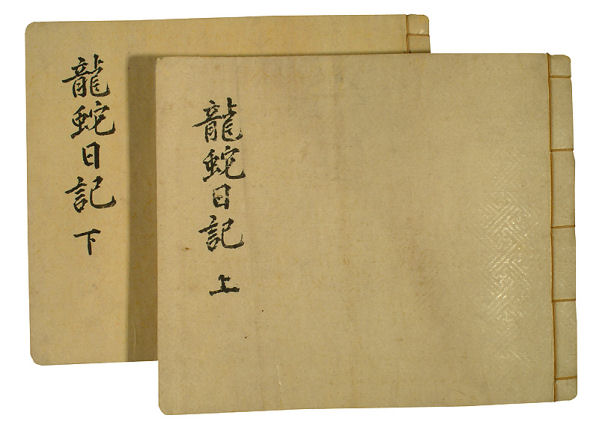 龍蛇日記 下
龍蛇日記 上